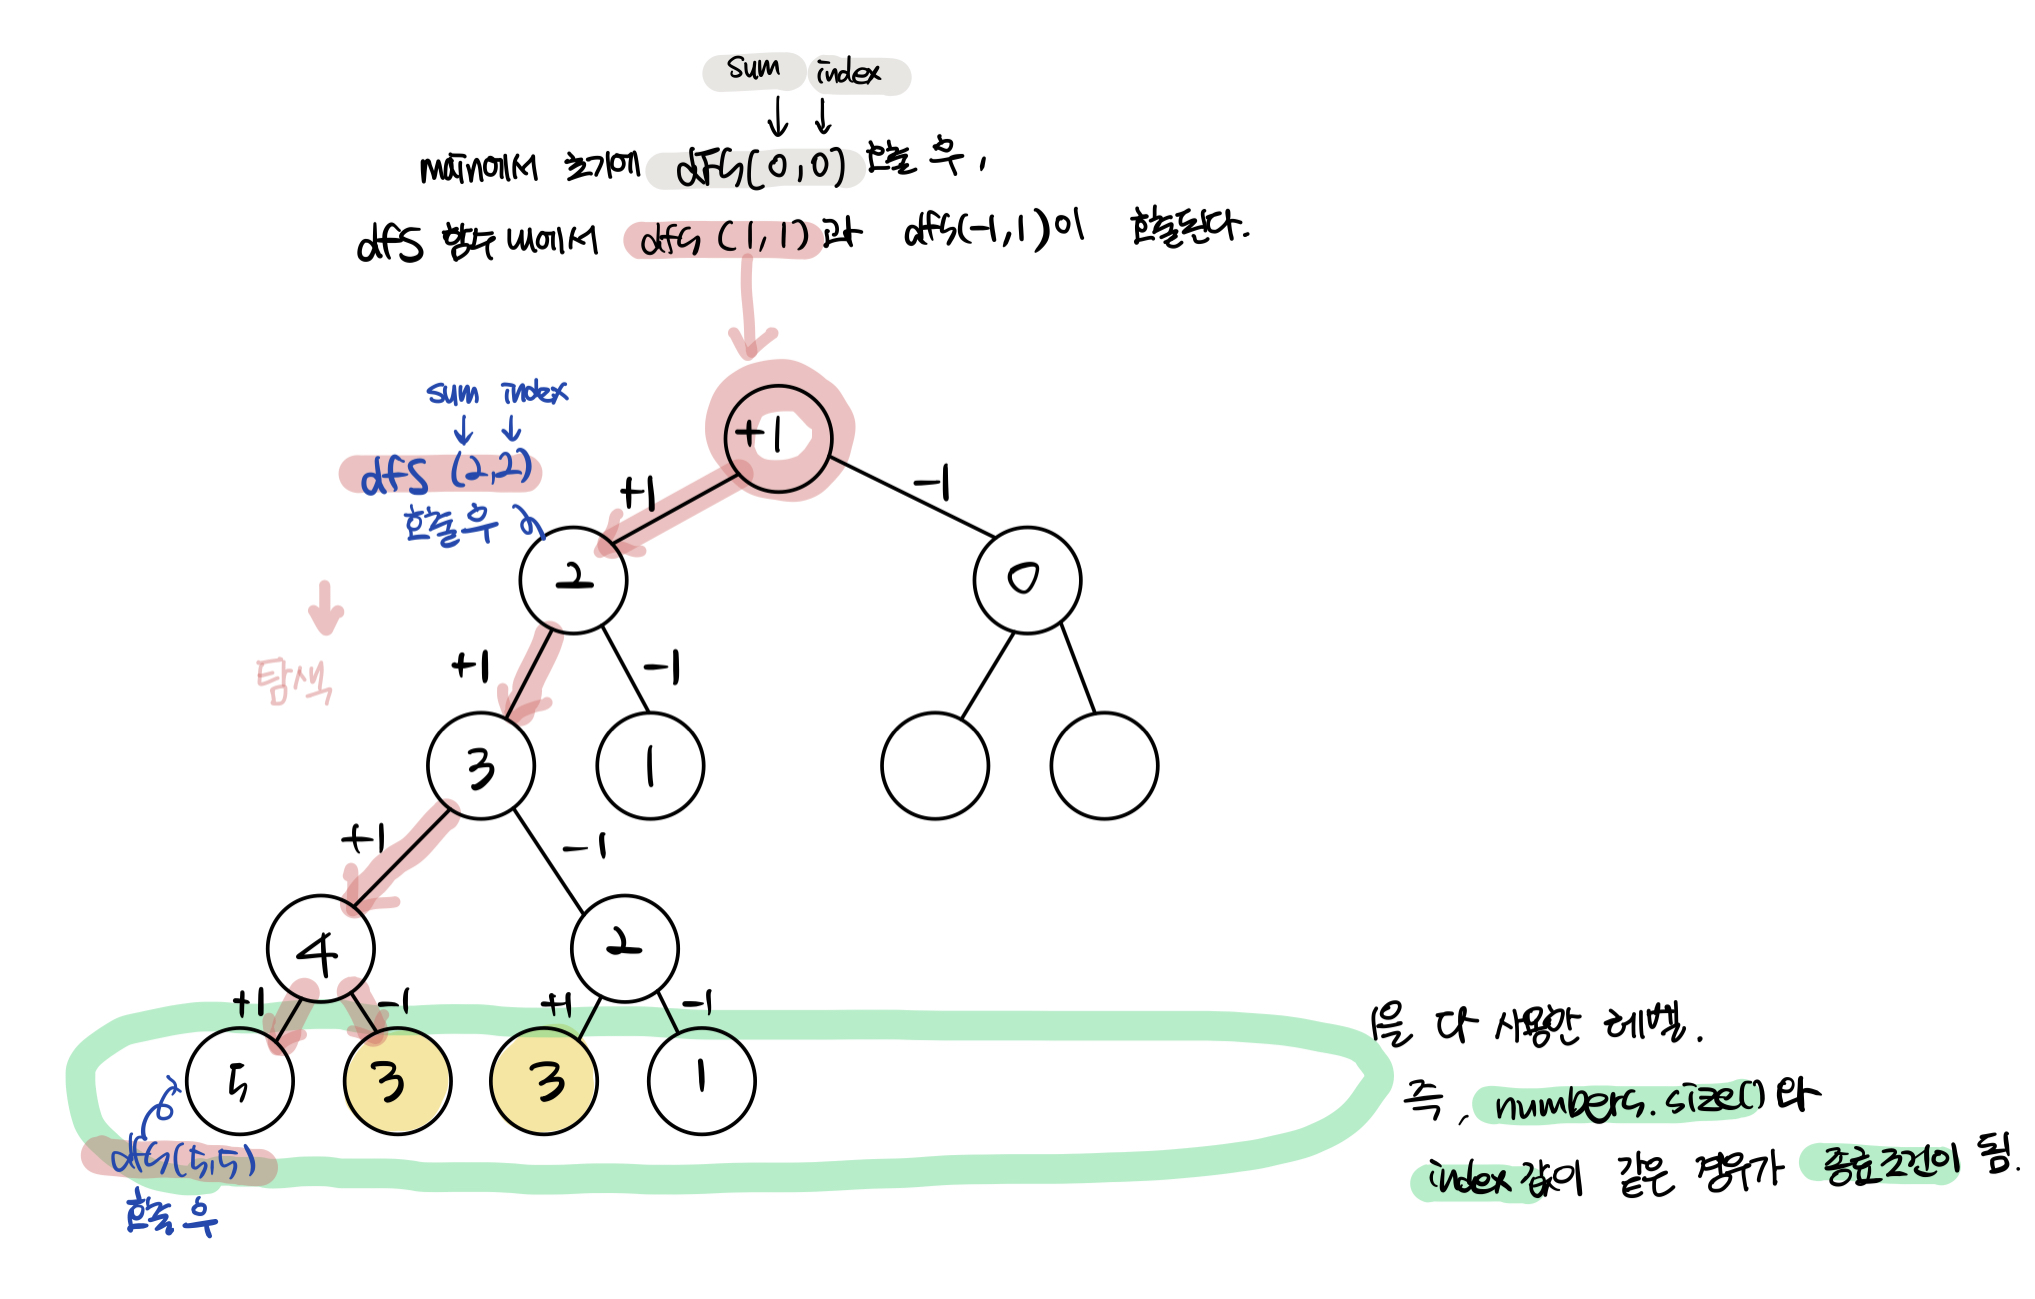 sum index
main에서 초기에 dfs(0,0) 호출 후,
dfs 함수 내에서 dfs (1,1)과 dfs(-1,1)이 호출된다.
sum index
dfs (2,2)
호출 후
탐색
+1
+1
-1
2
0
+1
-1
3
1
+1
-1
4
2
+1
-1
+1
-1
5
3
3
1
dfs(5,5)
호출 후
1을 다 사용한 레벨.
즉, numbers.size()와
index 값이 같은 경우가 종료조건이 됨.